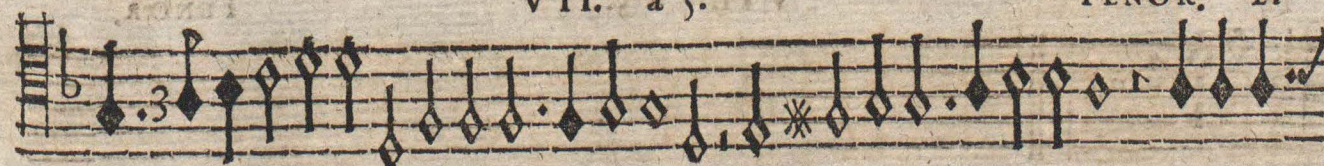 VII. a 5. TENOR.
3